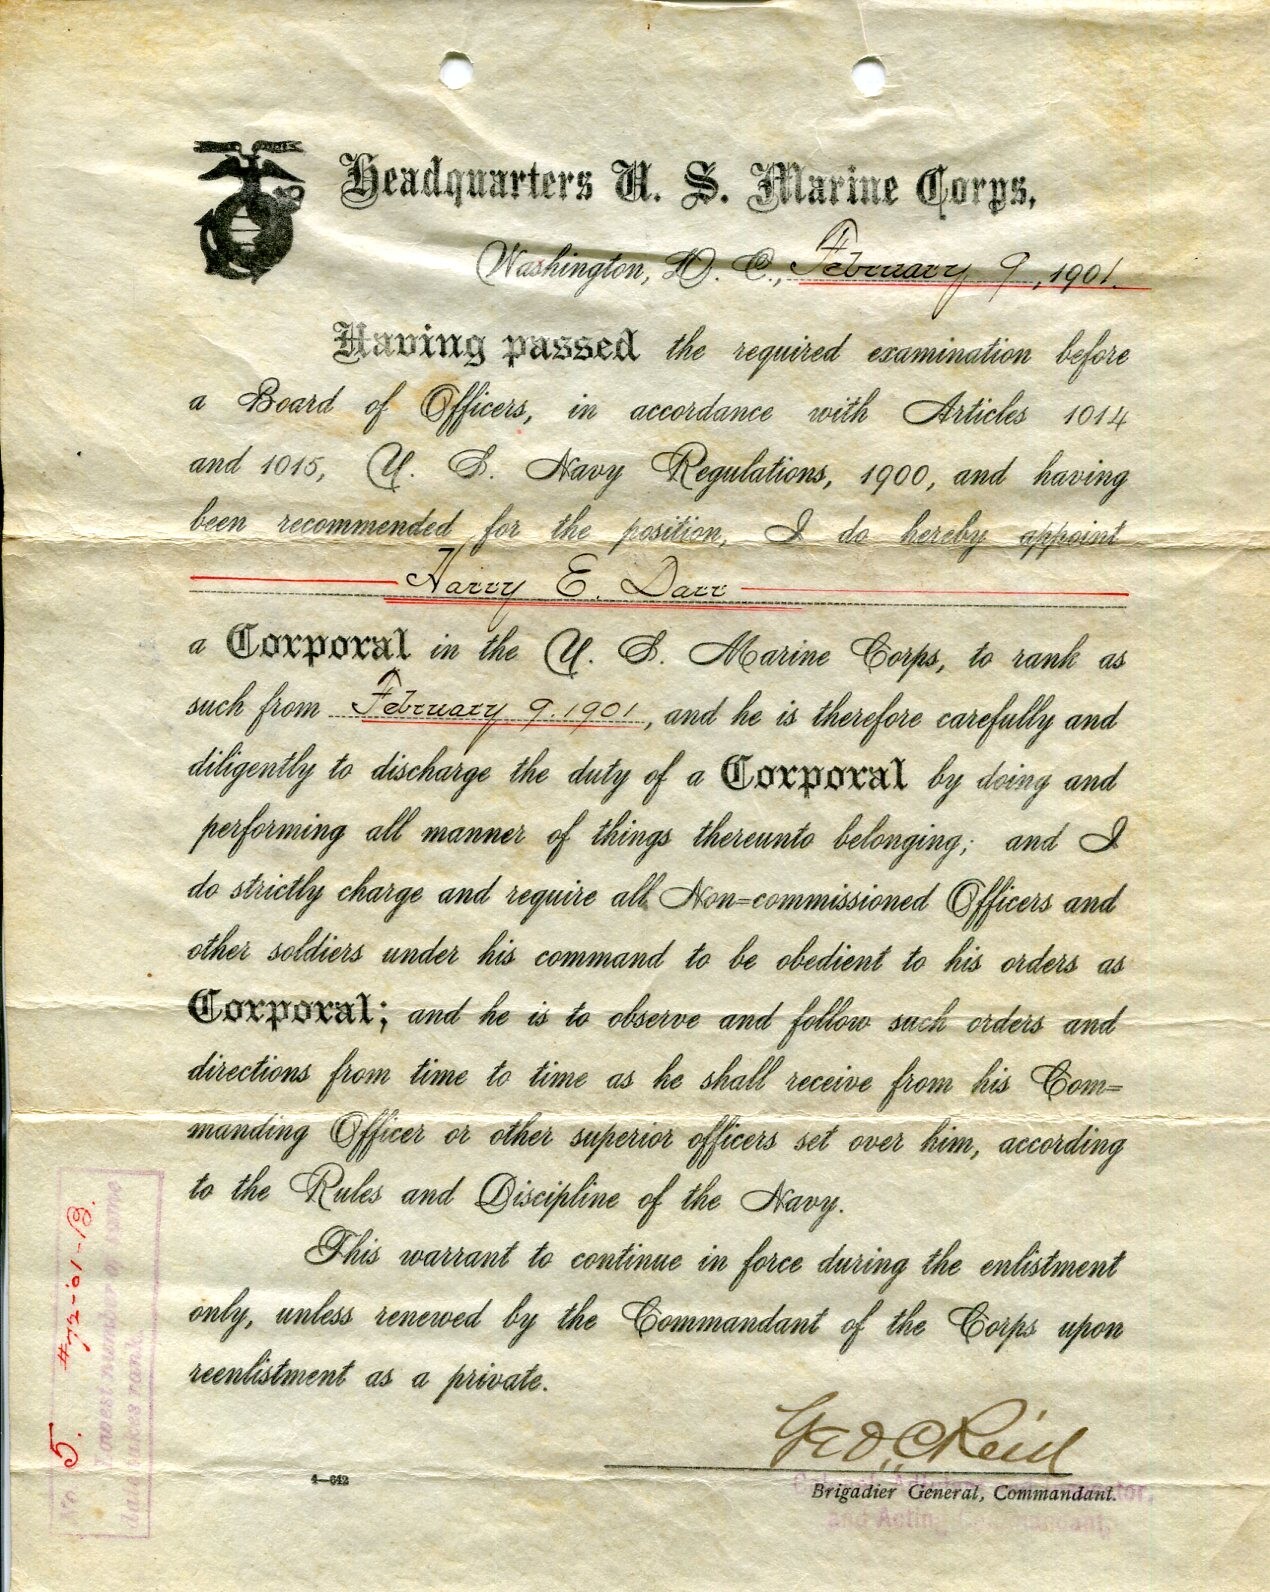 Headquarters U. S. Marine Corps,
Washington, D. C., February 9, 1901.
Having passed the required examination before
a Board of Officers, in accordance with Articles 1014
and 1015, U. S. Navy Regulations, 1900, and having
been recommended for the position, I do hereby appoint
Harry E. Darr
a Corporal in the U. S. Marine Corps, to rank as
such from February 9. 1901, and he is therefore carefully and
diligently to discharge the duty of a Corporal by doing and
performing all manner of things thereunto belonging; and I
do strictly charge and require all Non=commissioned Officers and
other soldiers under his command to be obedient to his orders as
Corporal; and he is to observe and follow such orders and
directions from time to time as he shall receive from his Com=
manding Officer or other superior officers set over him, according
to the Rules and Discipline of the Navy.
This warrant to continue in force during the enlistment
only, unless renewed by the Commandant of the Corps upon
reenlistment as a private.
Geo. C. Reid
Brigadier General, Commandant.
and Acting Commandant,
4—642
#72-'01-B.
No. 5.
Lowest number of same
date takes rank.